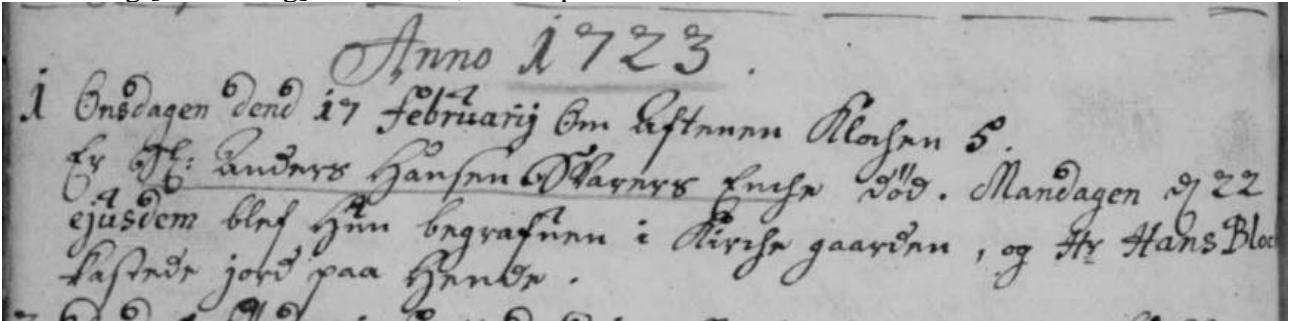 Anno 1723.
1 Onsdagen dend 17 Februarij Om Aftenen Klochen 5.
Er Sl: Anders Hansen Skarers Enche død. Mandagen dj 22
ejusdem blef Hun begrafuen i Kirche gaarden, og Hr Hans Bloc
kastede jord paa Hende.